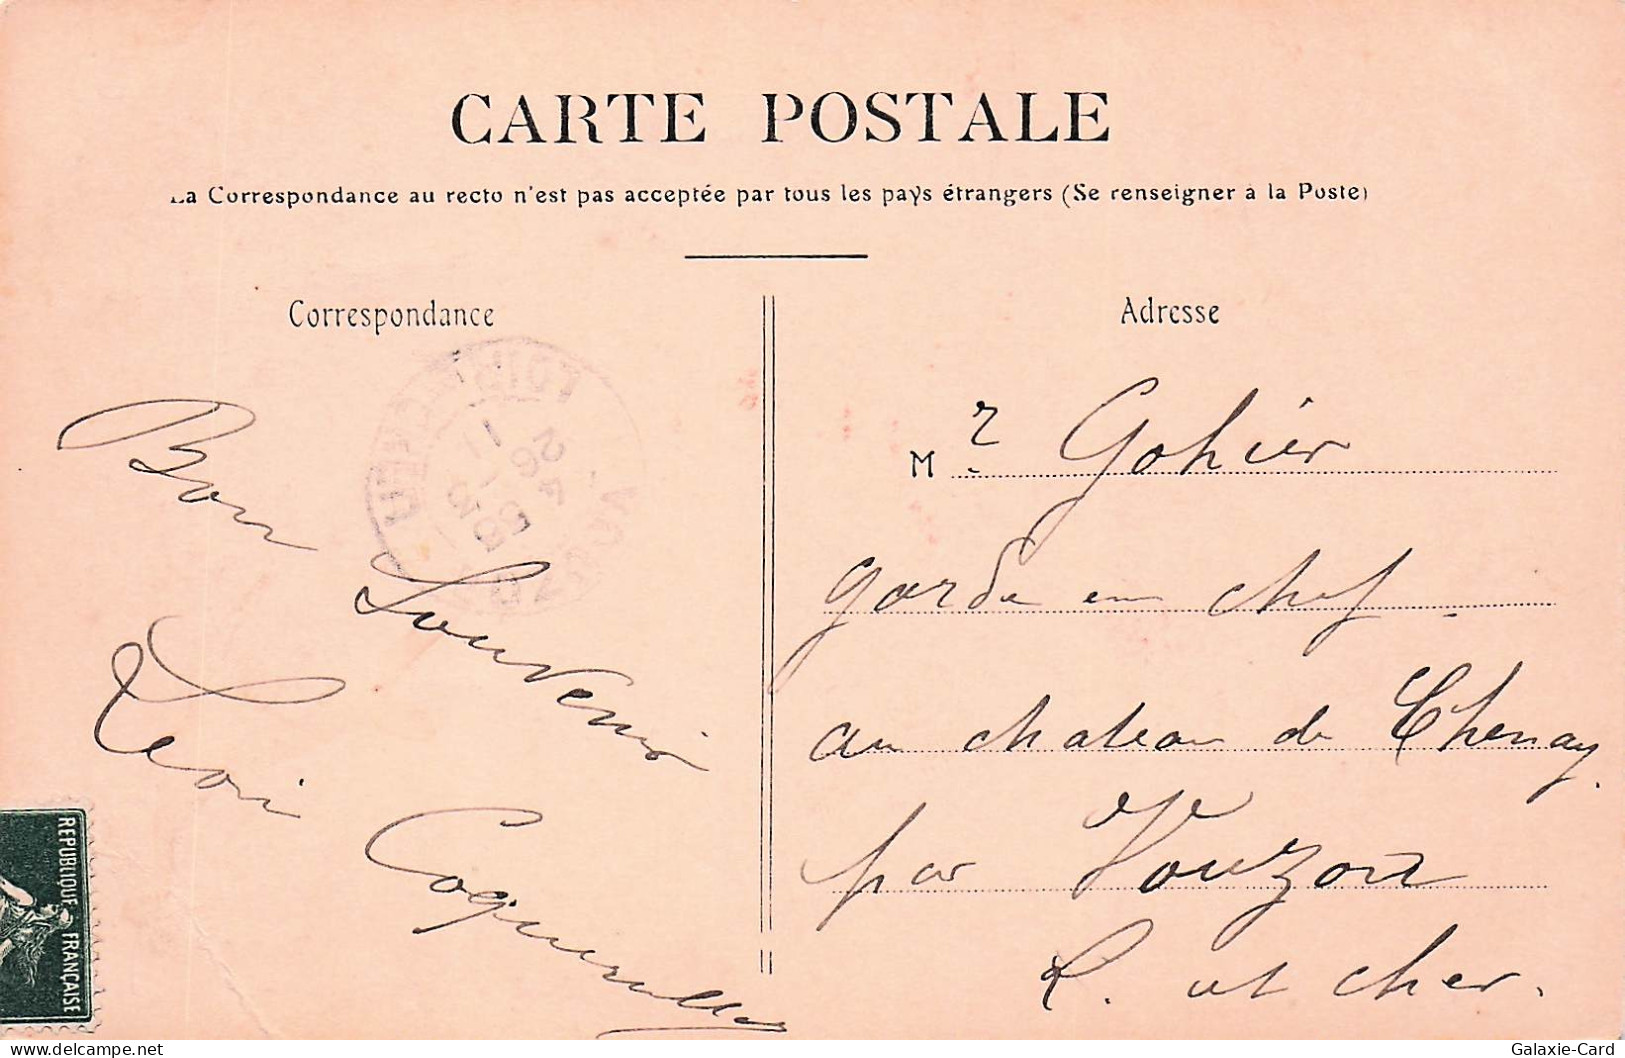 CARTE POSTALE
La Correspondance au recto n'est pas acceptée par tous les pays étrangers (Se renseigner à la Poste)
Correspondance
Bon Souvenir
Léon
Adresse
Mr Gohier
garde en chef
au chateau de Chenay
par Vouzon
L. et Cher.
LOIR-ET-CHER
REPUBLIQUE FRANÇAISE
delcampe.net
Galaxie-Card